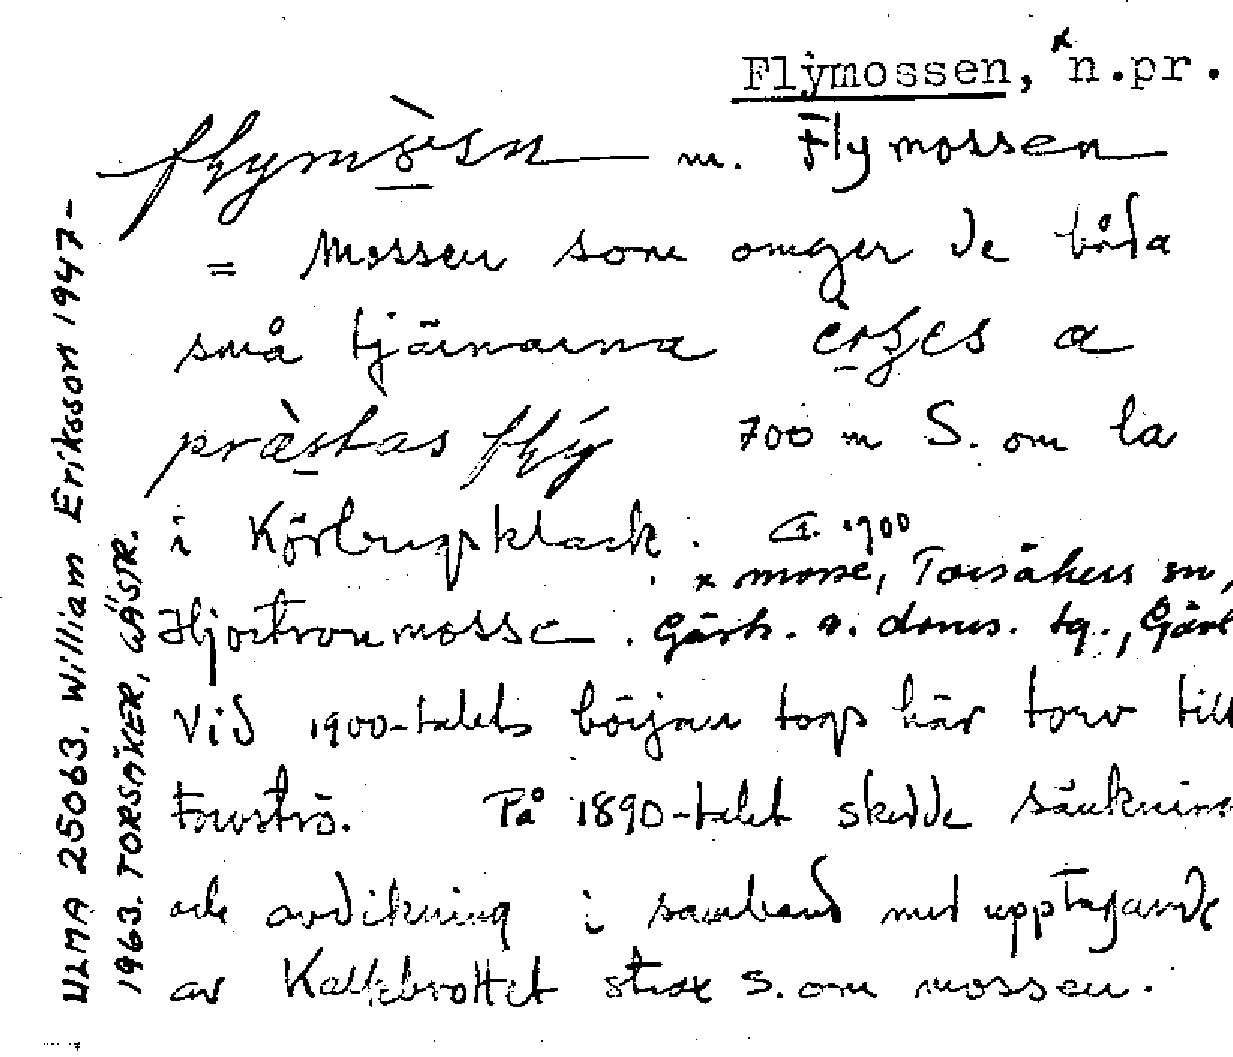 Flýmossen, ˣn.pr.
m. Flymossen
= Mossen som omger de båda
små tjärnarna a
700 m S. om la
i Körbergsklack. 1900
x mosse, Torsåkers sn,
Hjortronmosse. Gästr. ö. doms. tg.,
Vid 1900-talets början togs här torv till
torvströ. På 1890-talet skedde sänkning
och avdikning i samband med upptagande
av Kalkbrottet strax S. om mossen.
ULMA 25063. William Eriksson 1947-
1963. TORSÅKER, GÄSTR.